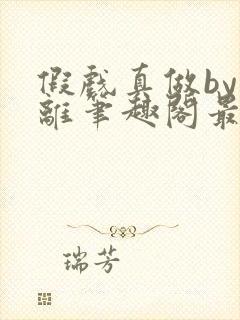 假戏真做by
离笔趣阁最
瑞芳